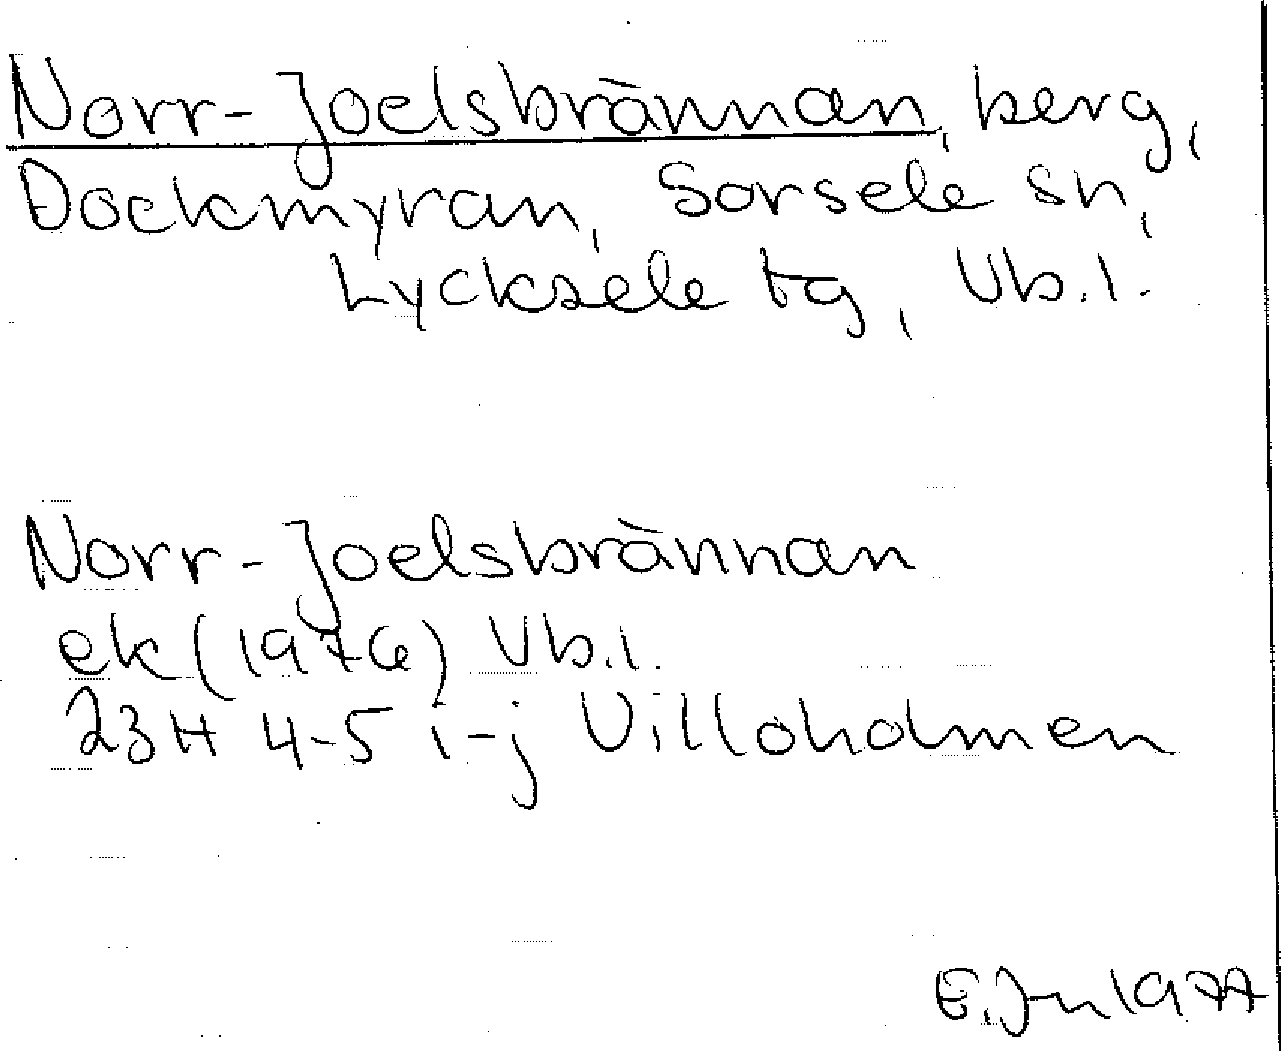 Norr-Joelsbrännan, berg,
Dockmyran, Sorsele sn,
Lycksele tg, Vb.l.
Norr-Joelsbrännan
ek (1976) Vb.l.
23H 4-5 i-j Villoholmen
E.Jn 1977